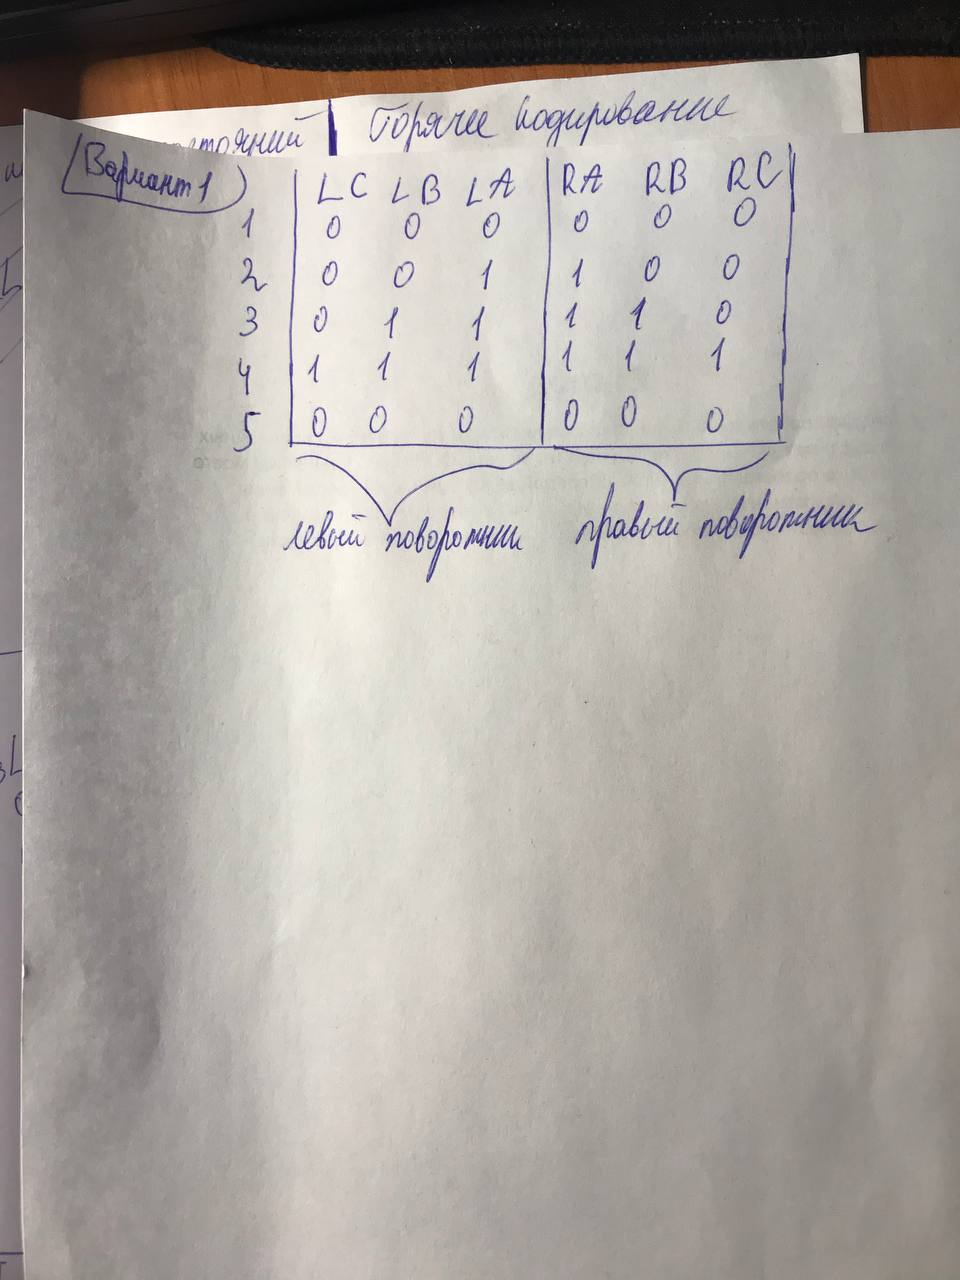 Горячее кодирование
Вариант 1
LC LB LA RA RB RC
1 0 0 0 0 0 0
2 0 0 1 1 0 0
3 0 1 1 1 1 0
4 1 1 1 1 1 1
5 0 0 0 0 0 0
левый поворотник правый поворотник